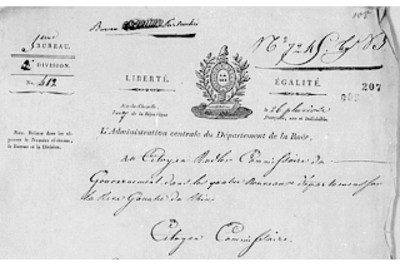 108
BUREAU.
2e DIVISION.
No. 412
LIBERTÉ.
ÉGALITÉ.
207
de la République
26 pluviôse
Française, une et indivisible.
Nota. Relater dans les réponses le Numéro ci-dessus, le Bureau et la Division.
L'Administration centrale du Département de la Roër,
au Citoyen Commissaire du
Gouvernement dans les quatre nouveaux départemens sur
la Rive Gauche du Rhin
Citoyen Commissaire.